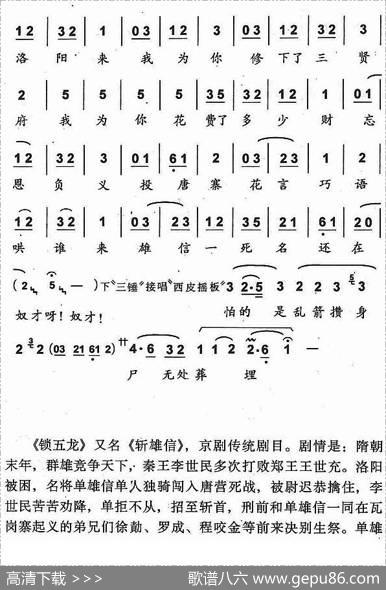 12 | 32 | 1 | 03 | 12 | 03 | 12 | 32 | 3
洛 阳 来 我 为 你 修 下了 三 贤
2 | 5 | 5 | 5 | 5 | 35 | 32 | 12 | 1 | 01
府 我 为 你 花 费了 多 少 财 忘
12 | 32 | 1 | 01 | 61 2 | 03 | 23 | 1 | 2
恩 负 义 投 唐 寨 花 言 巧 语
12 | 32 | 1 | 01 | 23 | 12 | 35 | 21 | 61 | 20
哄 谁 来 雄 信 一 死 名 还 在
(2 5 —) 下“三锤”接唱“西皮摇板” 3 2·5 3 2 2 3 5 3
奴才呀!奴才! 怕的 是乱箭攒身
2 3 2 (03 21 61 2) 4·6 32 1 1 2 2·6 1 —
尸 无处葬 埋
《锁五龙》又名《斩雄信》,京剧传统剧目。剧情是:隋朝
末年,群雄竞争天下,秦王李世民多次打败郑王王世充。洛阳
被困,名将单雄信单人独骑闯入唐营死战,被尉迟恭擒住,李
世民苦苦劝降,单拒不从,招至斩首,刑前和单雄信一同在瓦
岗寨起义的弟兄们徐勣、罗成、程咬金等前来决别生祭。单雄
高清下载 >>> 歌谱八六 www.gepu86.com